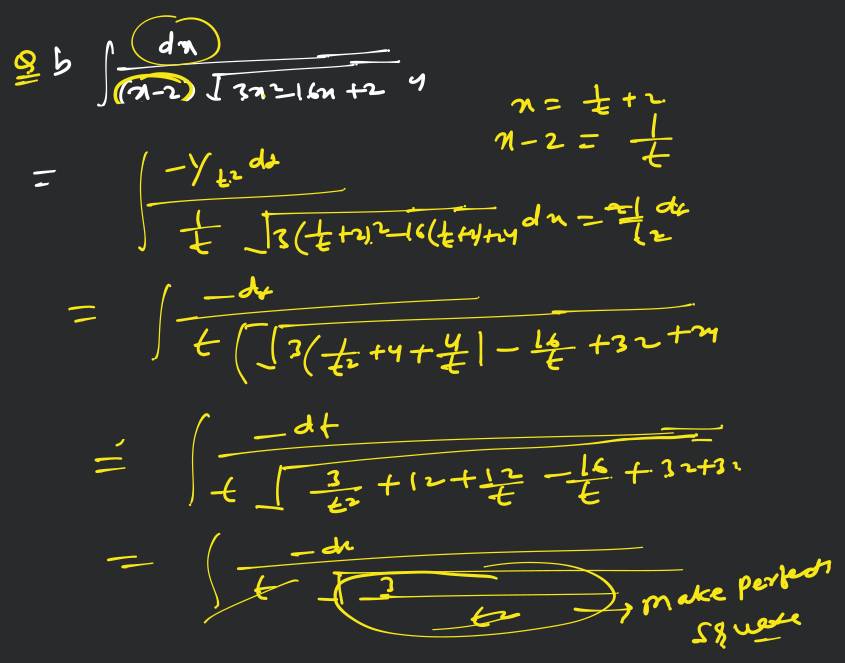 Q b ∫ dx / (x-2) √3x²-16x+24
x = 1/t + 2
x - 2 = 1/t
= ∫ -1/t² dt / 1/t √3(1/t+2)²-16(1/t+2)+24
dx = -1/t² dt
= ∫ -dt / t (√3(1/t²+4+4/t) - 16/t +32+24
= ∫ -dt / t √ 3/t² +12+12/t - 16/t + 32+
= ∫ -dt / t √ 3 / t²
→ make perfect
square